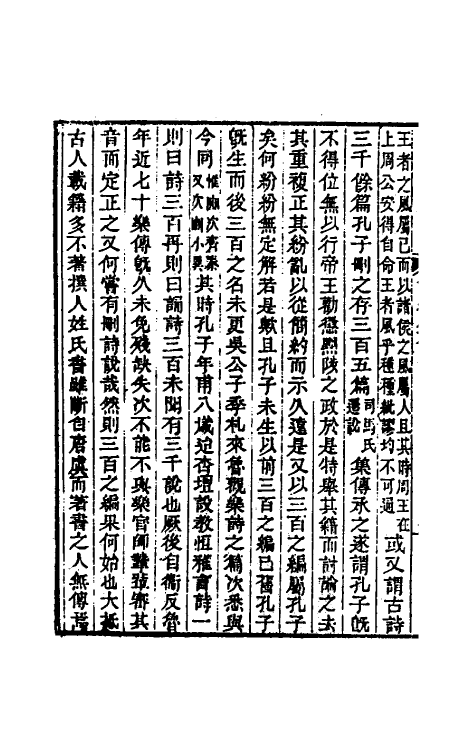 王者之風屬己而以諸侯之風屬人且其時周王在
上周公安得自命王者風乎種種紕謬均不可通 或又謂古詩
三千餘篇孔子刪之存三百五篇司馬氏遷說 集傳承之遂謂孔子旣
不得位無以行帝王勸懲黜陟之政於是特舉其籍而討論之去
其重複正其紛亂以從簡約而示久遠是又以三百之編屬孔子
矣何紛紛無定解若是歟且孔子未生以前三百之編已舊孔子
旣生而後三百之名未更吳公子季札來魯觀樂詩之篇次悉與
今同惟豳次齊秦又次豳小異其時孔子年甫八歲迨杏壇設教恒雅言詩一
則曰詩三百再則曰誦詩三百未聞有三千說也厥後自衞反魯
年近七十樂傳旣久未免殘缺失次不能不與樂官師摯輩審其
音而定正之又何嘗有刪詩說哉然則三百之編果何始也大抵
古人載籍多不著撰人姓氏書雖斷自唐虞而著書之人無傳焉